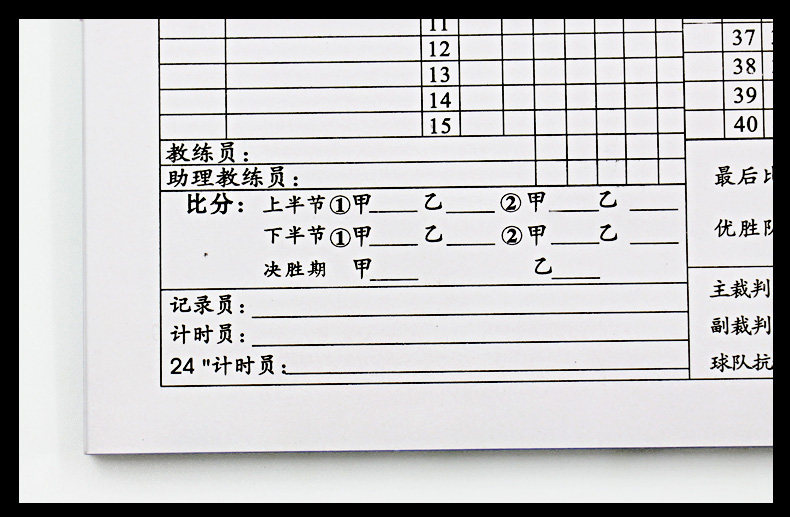 11
12 37
13 38
14 39
15 40
教练员：
助理教练员：
比分：上半节①甲____乙____②甲____乙____
下半节①甲____乙____②甲____乙____
决胜期 甲____ 乙____
记录员：
计时员：
24 "计时员：
最后比
优胜队
主裁判
副裁判
球队抗